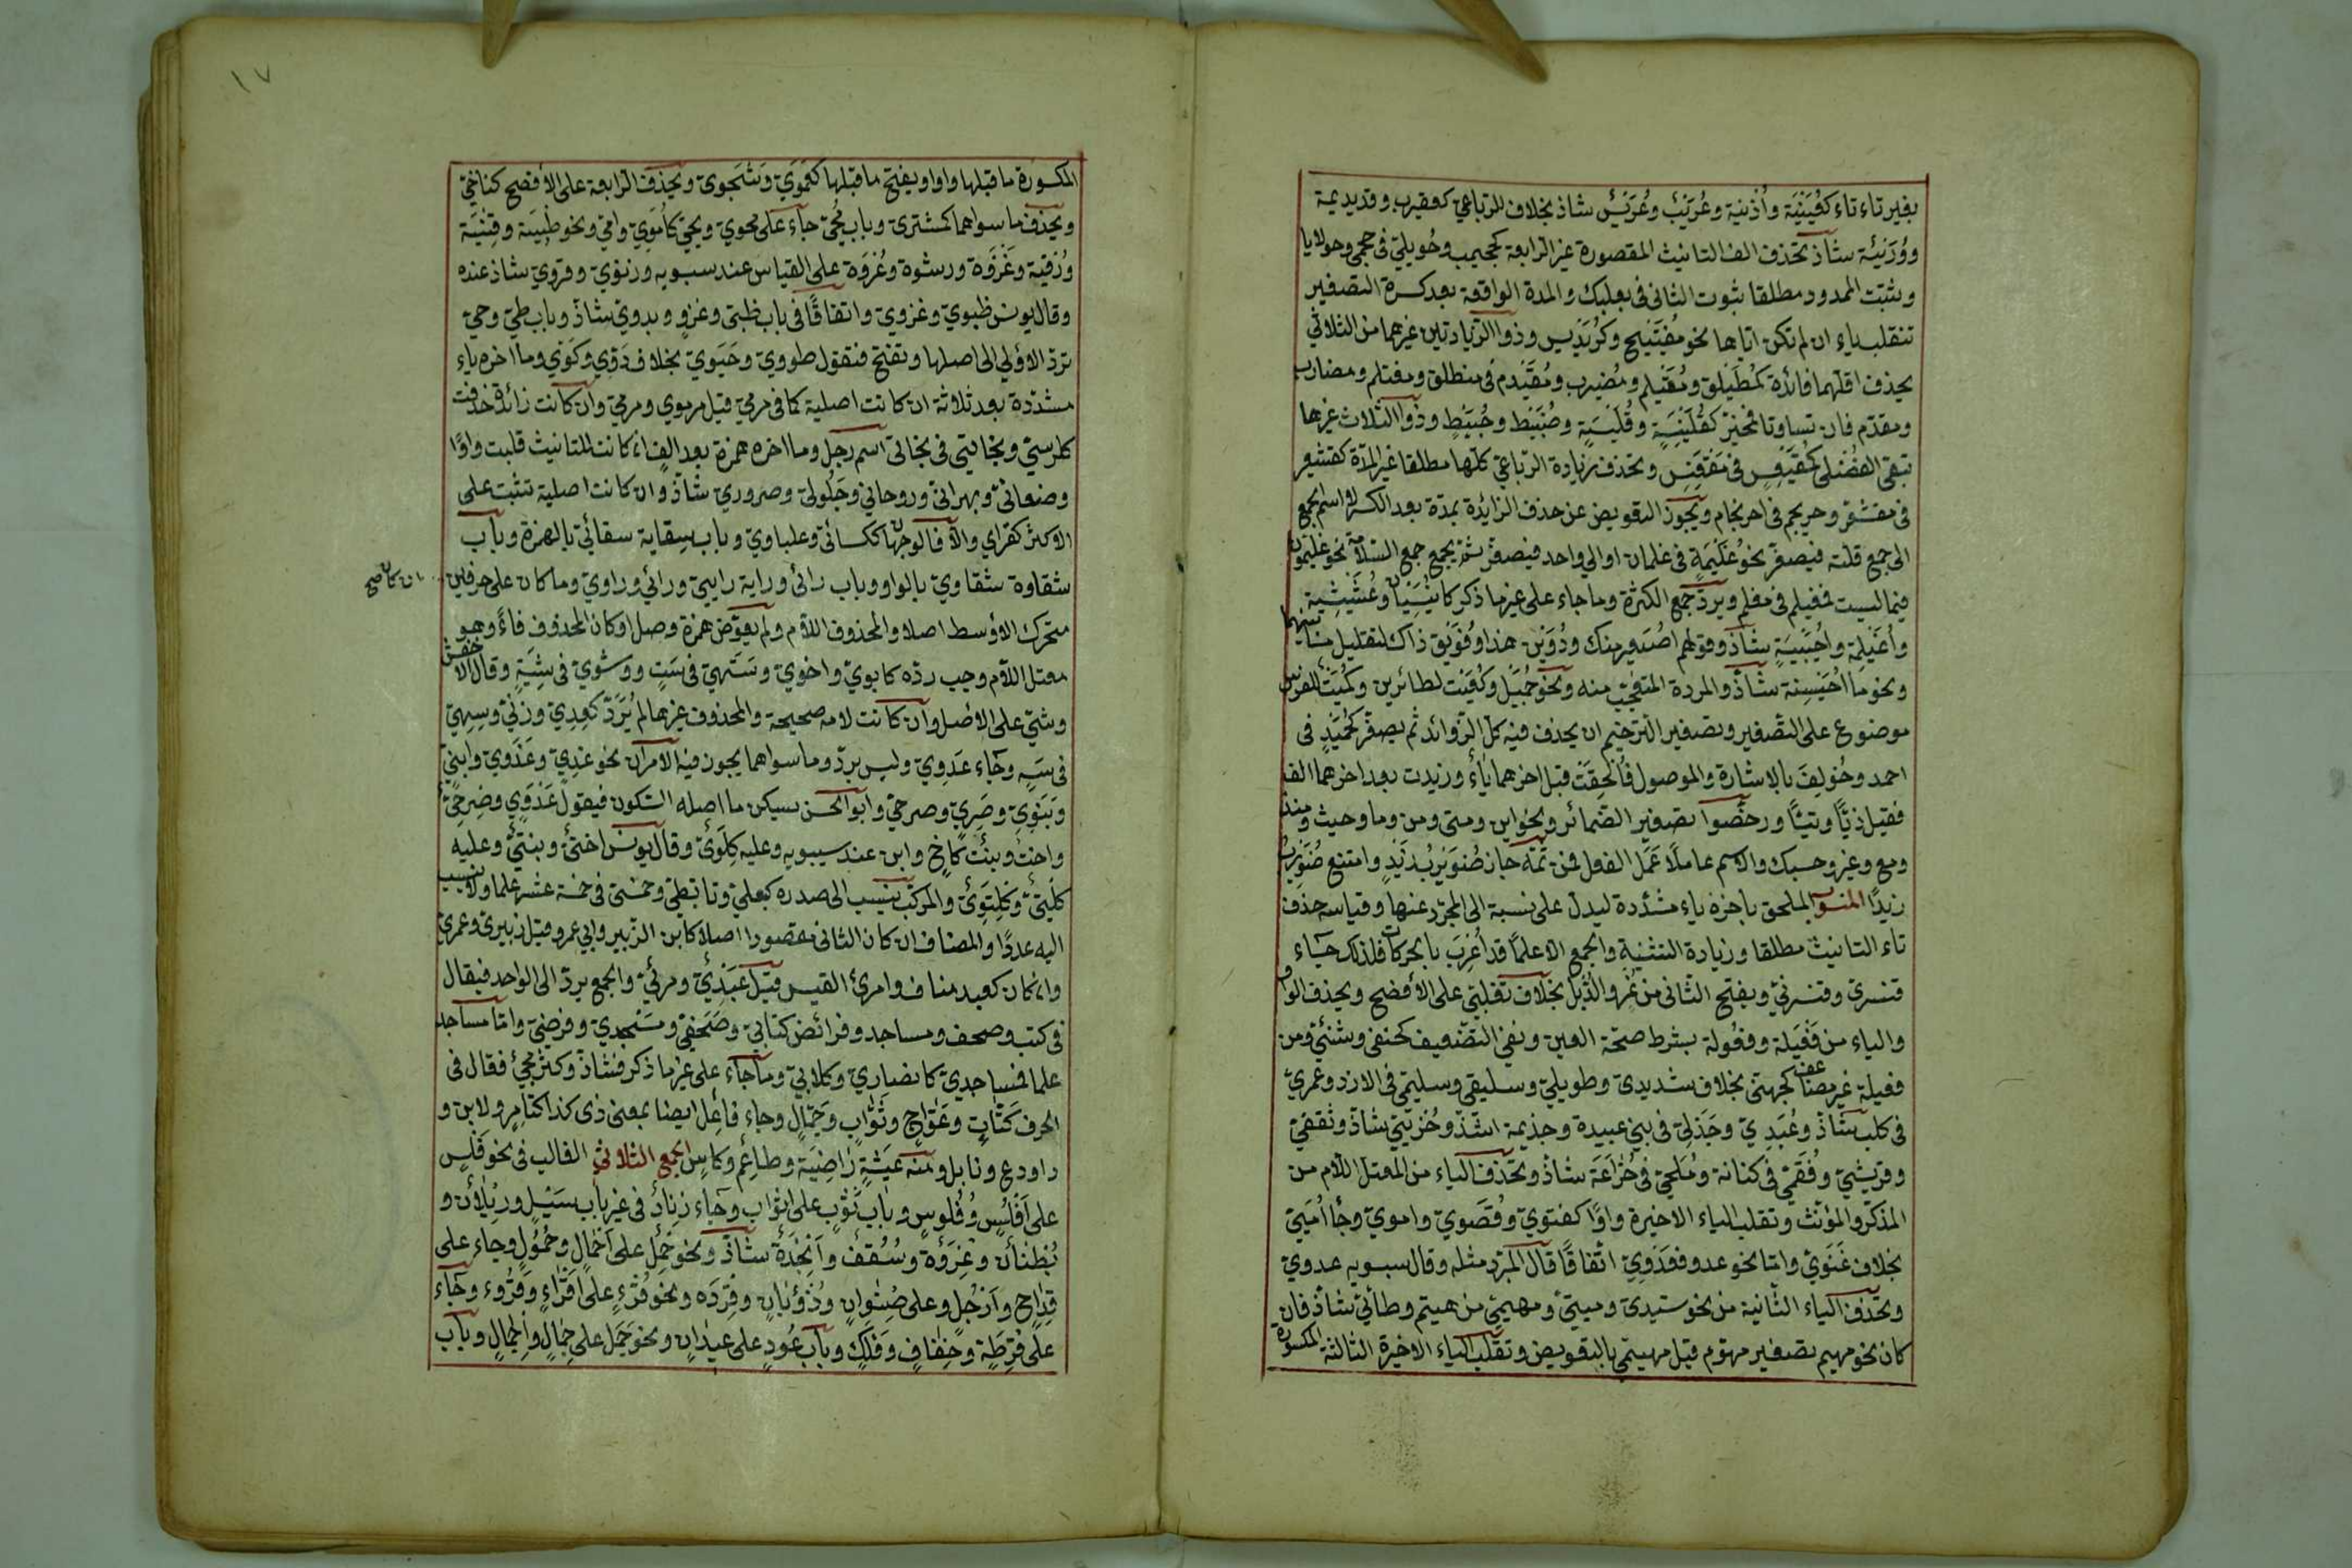 بغير تاء تاء كعُيَيْنَة وأُذَينة وعُرَيْب وعُرَيْس شاذ بخلاف الرّباعيّ كعقيرب وقديديمة
ووُرَيِّئة شاذ تحذف الف التانيث المقصورة غير الرّابعة كجحيجب وحُويليّ فى حججبى وحولايا
ويثبت الممدود مطلقا ثبوت الثانى فى بعلبك والمدة الواقعة بعد كسرة التصغير
تنقلب ياء ان لم تكن اياها نحو مُفَيْتيح وكُرَيديس وذوا الزّيادتين غيرهما من الثلاثيّ
يحذف اقلهما فائدة كمُطَيلق ومُغَيلم ومُضيرب ومُقَيدم فى منطلق ومغتلم ومضارب
ومقدّم فان تساوتا فمخيّر كقُلَيْنِسَةٍ وقُلَيْسِيَةٍ وحُبَيْنِط وحُبَيْطٍ وذوا الثلاث غيرها
تبقى الفضلى كمُقَيْعِسٍ فى مقعنسس وتحذف زيادة الرّباعيّ كلّها مطلقا غير المدّة كقشيعر
فى مقشعر وحريجم فى احرنجام ويجوز التعويض عن حذف الزائدة بمدة بعد الكسرة واسم الجمع
الى جمع قلته فيصغّر نحو غُلَيْمَةٍ فى غلمان او الى واحد فيصغّر ثمّ يجمع جمع السّلامة نحو غليّمون
وأُغَيْلِمَة وأُصَيْبِيَةٍ شاذ وقولهم اصيغر منك ودُوَيْن هذا وفُوَيْق ذاك لتقليل ما بينهما
ونحو ما اُحَيْسِنة شاذّ والمراد المتعجّب منه ونحو جُمَيْل وكُعَيْت لطائرين وكُميت للفرس
موضوع على التّصغير وتصغير التّرخيم ان يحذف فيه كلّ الزّوائد ثم يصغّر كحُمَيْدٍ فى
احمد وخُولِفَ بالاشارة والموصول فأُلحِقَتْ قبل اخرهما ياءٌ وزيدت بعد اخرهما الف
فقيل ذيّا وتيّا ورفضوا تصغير الضّمائر ونحو اين ومتى ومن وما وحيث ومنذ
ومع وغير وحسبك والاسم عاملًا عَمَل الفعل فمن ثمّه جاز ضُوَيرِبُ زيدٍ وامتنع ضُوَيرِبٌ
زيدًا المنسوب الملحق باخره ياء مشدّدة ليدلّ على نسبة الى المجرّد عنها وقياسه حذف
تاء التانيث مطلقا وزيادة التثنية والجمع الا علمًا قد أُعْرِبَ بالحركات فلذلك جاء
قنّسرىّ وقنّسرينيّ ويفتح الثّانى من نَمِرٍ والدُّئِل بخلاف تغلبيّ على الأفصح ويحذف الواو
والياء من فَعيلة وفعُولة بشرط صحّة العين ونفي التضعيف كحنفى وشنئيّ ومن
فعيلة غير مضاعف كجهنى بخلاف شديدى وطويليّ وسليقى وسليمى فى الازد وعمرىّ
فى كلب شاذّ وعُبَدِيّ وجُذَمىّ فى بنى عبيدة وجذيمة اشذّ وخُرَيبيّ شاذّ وثقفىّ
وقريشيّ وفُقَمىّ فى كنانة ومُلَحيّ فى خُزَاعَة شاذّ وتحذف الياء من المعتلّ اللّام من
المذكّر والمؤنّث وتقلب الياء الاخيرة واوًا كغنويّ وقُصَويّ وامويّ وجاء أُمَيّىّ
بخلاف غَنَوِيّ وامّا نحو عدو فعَدُوّيّ اتّفاقًا قال المبرّد مثله وقال سيبويه عدويّ
وتحذف الياء الثّانية من نحو سيّدىّ وميّتىّ ومهيميّ من هيّم وطائىّ شاذ فان
كان نحو مهيّيم تصغير مهوّم قيل مهيّيميّ بالتعويض وتقلب الياء الاخيرة الثالثة المكسورة
١٧
المكسورة ما قبلها واوا ويفتح ما قبلها كعَمَوِيّ وشَجَويّ وتحذف الرّابعة على الأفصح كقاضيّ
ويحذف ما سواهما كمشترىّ وباب مُحَيّ جاء على محويّ ومحيّيّ كأُمَويّ وأميّيّ ونحو ظبية وقنية
ورُقية وغَزْوَة ورشوة وعُروَة على القياس عند سيبويه وزنويّ وقرويّ شاذ عنده
وقال يونس ظبويّ وغزويّ واتفاقًا فى باب ظبى وغزو وبدويّ شاذّ وباب طيّ وحيّ
تردّ الاولى الى اصلها وتفتح فتقول طوويّ وحَيَويّ بخلاف دَوّيّ وكَوّيّ وما اخره ياء
مشدّدة بعد ثلاثة ان كانت اصلية كما فى مرميّ قيل مرمويّ ومرميّ وان كانت زائدة حذفت
ككرسيّ وبخاتيّ فى بخاتىّ اسم رجل وما اخره همزة بعد الف ان كانت للتانيث قلبت واوًا
وصنعانىّ وبهرانىّ وروحانىّ وجَلُولىّ وحروريّ شاذّ وان كانت اصلية تثبت على
الاكثر كقرّاىّ والّا فالوجهان ككسائىّ وعلباويّ وباب سِقاية سقائىّ بالهمزة وباب
شقاوة شقاويّ بالواو وباب راى وراية راييّ ورائىّ وراويّ وما كان على حرفين ان كان صح
متحرّك الاوسط اصلا والمحذوف اللّام ولم يعوّض همزة وصل او كان المحذوف فاءً وهو
معتل اللّام وجب ردّه كابويّ واخويّ وسَتَهىّ فى سَتٍ ووشويّ فى شِيَةٍ وقال الاخفش
وشييّ على الاصل وان كانت لامه صحيحة والمحذوف غيرها لم يُرَدّ كعِدِيّ وزِنىّ وسَهىّ
فى سَهٍ وجاء عِدَويّ وليس بردّ وما سواهما يجوز فيه الامران نحو غَدِيّ وغَدَويّ وابنىّ
وبَنَويّ وحِرِيّ وحرحىّ وابو الحسن يسكن ما اصله السّكون فيقول غَدْوِيّ وحِرْحىّ
واخت وبنت كاخ وابن عند سيبويه وعليه كِلَوىّ وقال يونس اختىّ وبنتىّ وعليه
كلتىّ وكلتَوىّ والمركّب ينسب الى صدره كبعلىّ وتابّطىّ وخمسىّ فى خمسة عشر علما ولا ينسب
اليه عددًا والمضاف ان كان الثانى مقصودا اصلا كابن الزّبير وابي عمرو قيل زبيرىّ وعمرىّ
وان كان كعبد مناف وامرئ القيس قيل عَبْدِيّ ومرئىّ والجمع يردّ الى الواحد فيقال
فى كتب وصحف ومساجد وفرائض كتابىّ وصَحَفيّ ومَسْجديّ وفرضيّ وامّا مساجد
علما فمساجديّ كانصاريّ وكلابىّ وما جاء على غير ما ذكر فشاذّ وكثر مجئ فعّال فى
الحرف كبَتّاتٍ وعَوّاجٍ وثَوّابٍ وجَمّالٍ وجاء فاعل ايضا بمعنى ذى كذا كتامرٍ ولابن و
دارع ونابل ومنه عيشةٍ رَاضِيَة وطاعِم وكاسٍ الجمع الثلاثىّ الغالب فى نحو فَلْسٍ
على أَفْلُسٍ وفُلوسٍ وباب ثَوْبٍ على اثواب وجاء زِنادٌ فى غير باب سَيْلٍ ورِئلان و
بُطنان وغِرَدَة وسُقُف وأَنْجِدَة شاذّ ونحو حِمْلٍ على أَحْمالٍ وحُمُولٍ وجاء على
قِداح وأَرْجُلٍ وعلى صِنْوانٍ وذُؤْبانٍ وقِرَدَه ونحو قُرْءٍ على أَقْراءٍ وقُرُوء وجاء
على قِرَطَة وخِفافٍ وفُلْكٍ وباب عُودٍ على عيدان ونحو جَمَل على جِمَالٍ وأَجْمالٍ وباب